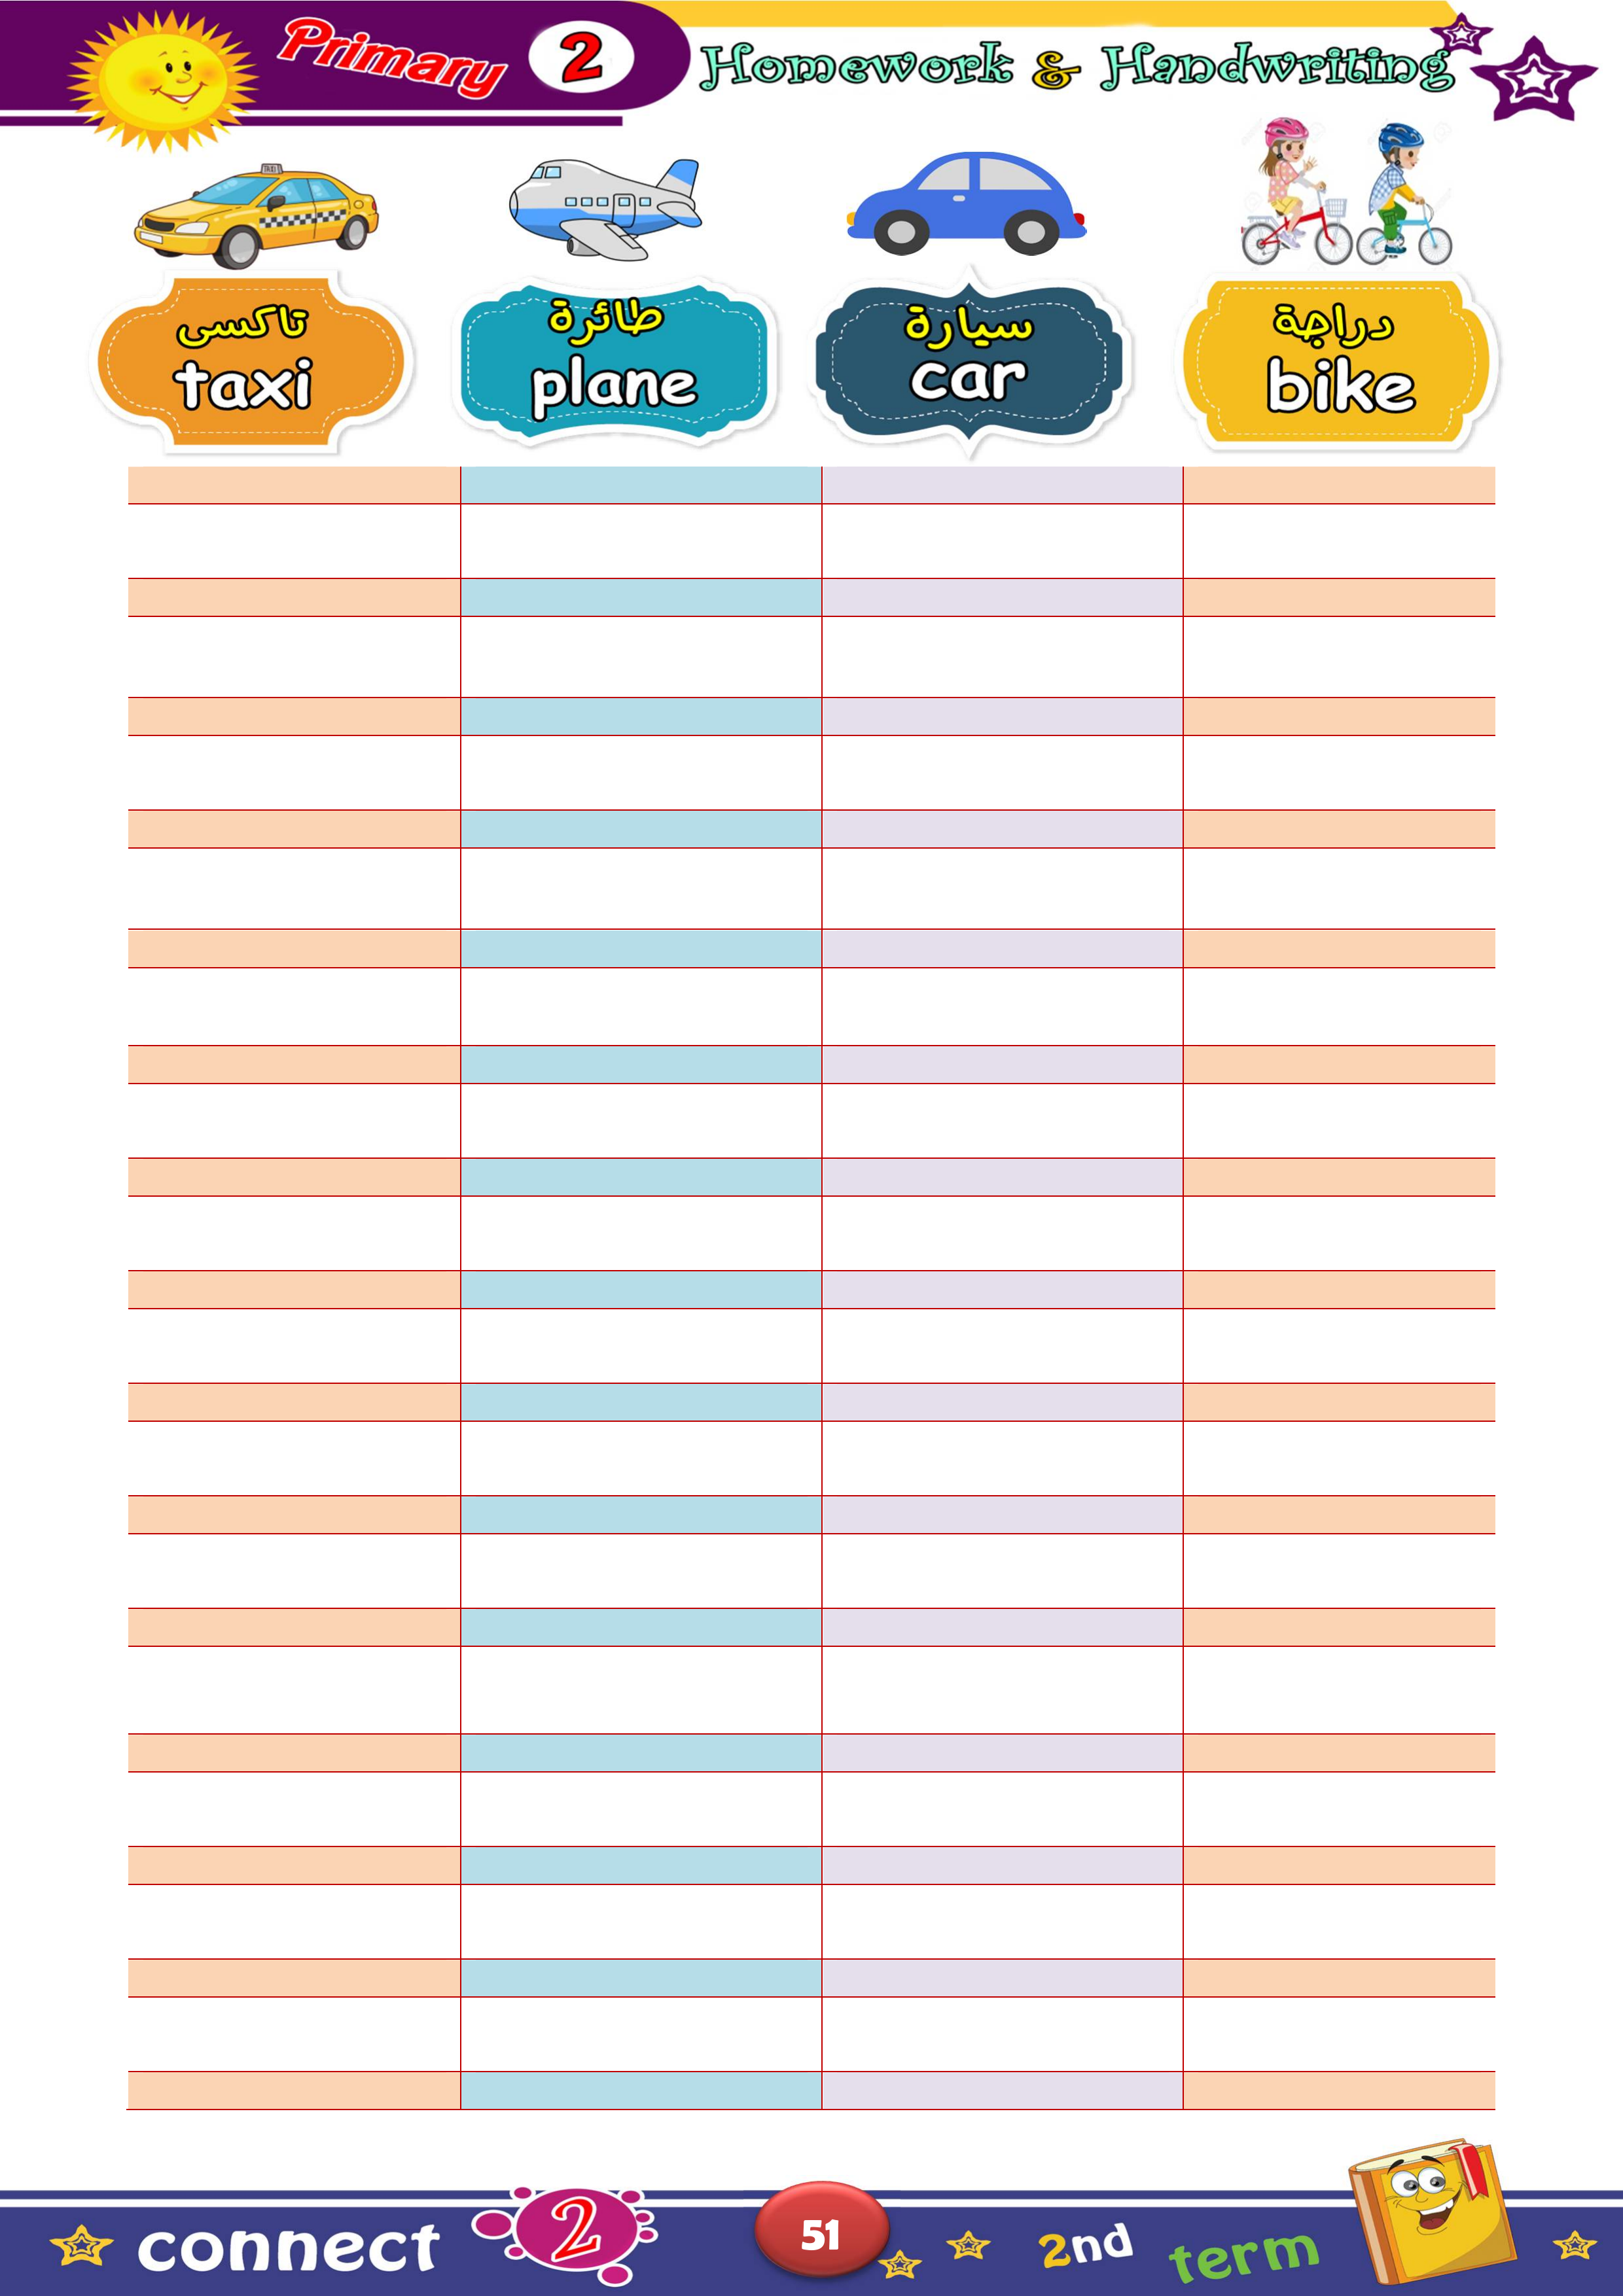 Primary 2 Homework & Handwriting
TAXI
تاكسى
taxi
طائرة
plane
سيارة
car
دراجة
bike
connect 2 51 2nd term